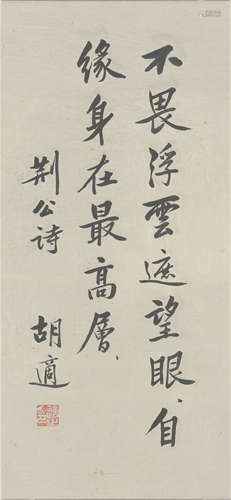 不畏浮雲遮望眼、自
緣身在最高層、
荆公詩
胡適